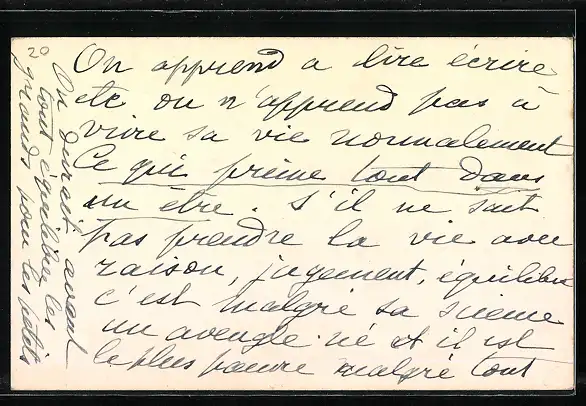 On apprend a lire écrire
etc on n'apprend pas à
vivre sa vie normalement
Ce qui prime tout dans
un être. S'il ne sait
pas prendre la vie avec
raison, jugement, équilibre
c'est malgré sa science
un aveugle né et il est
le plus pauvre malgré tout
20
On avant
tout équilibrer les
grands pour les petits